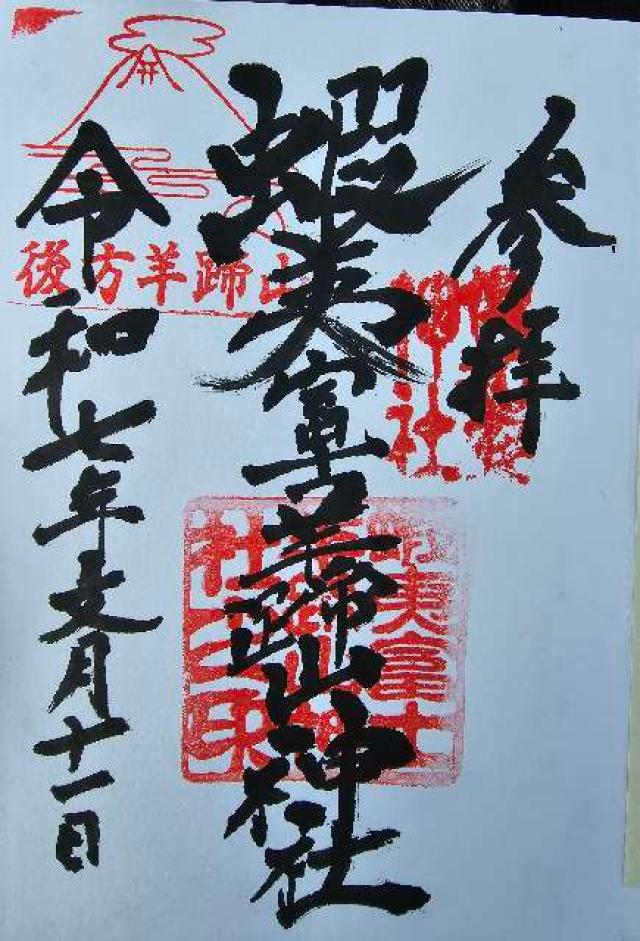 参拝
蝦夷富士羊蹄山神社
令和七年文月十一日
後方羊蹄山
蝦夷富士
社之印
神社